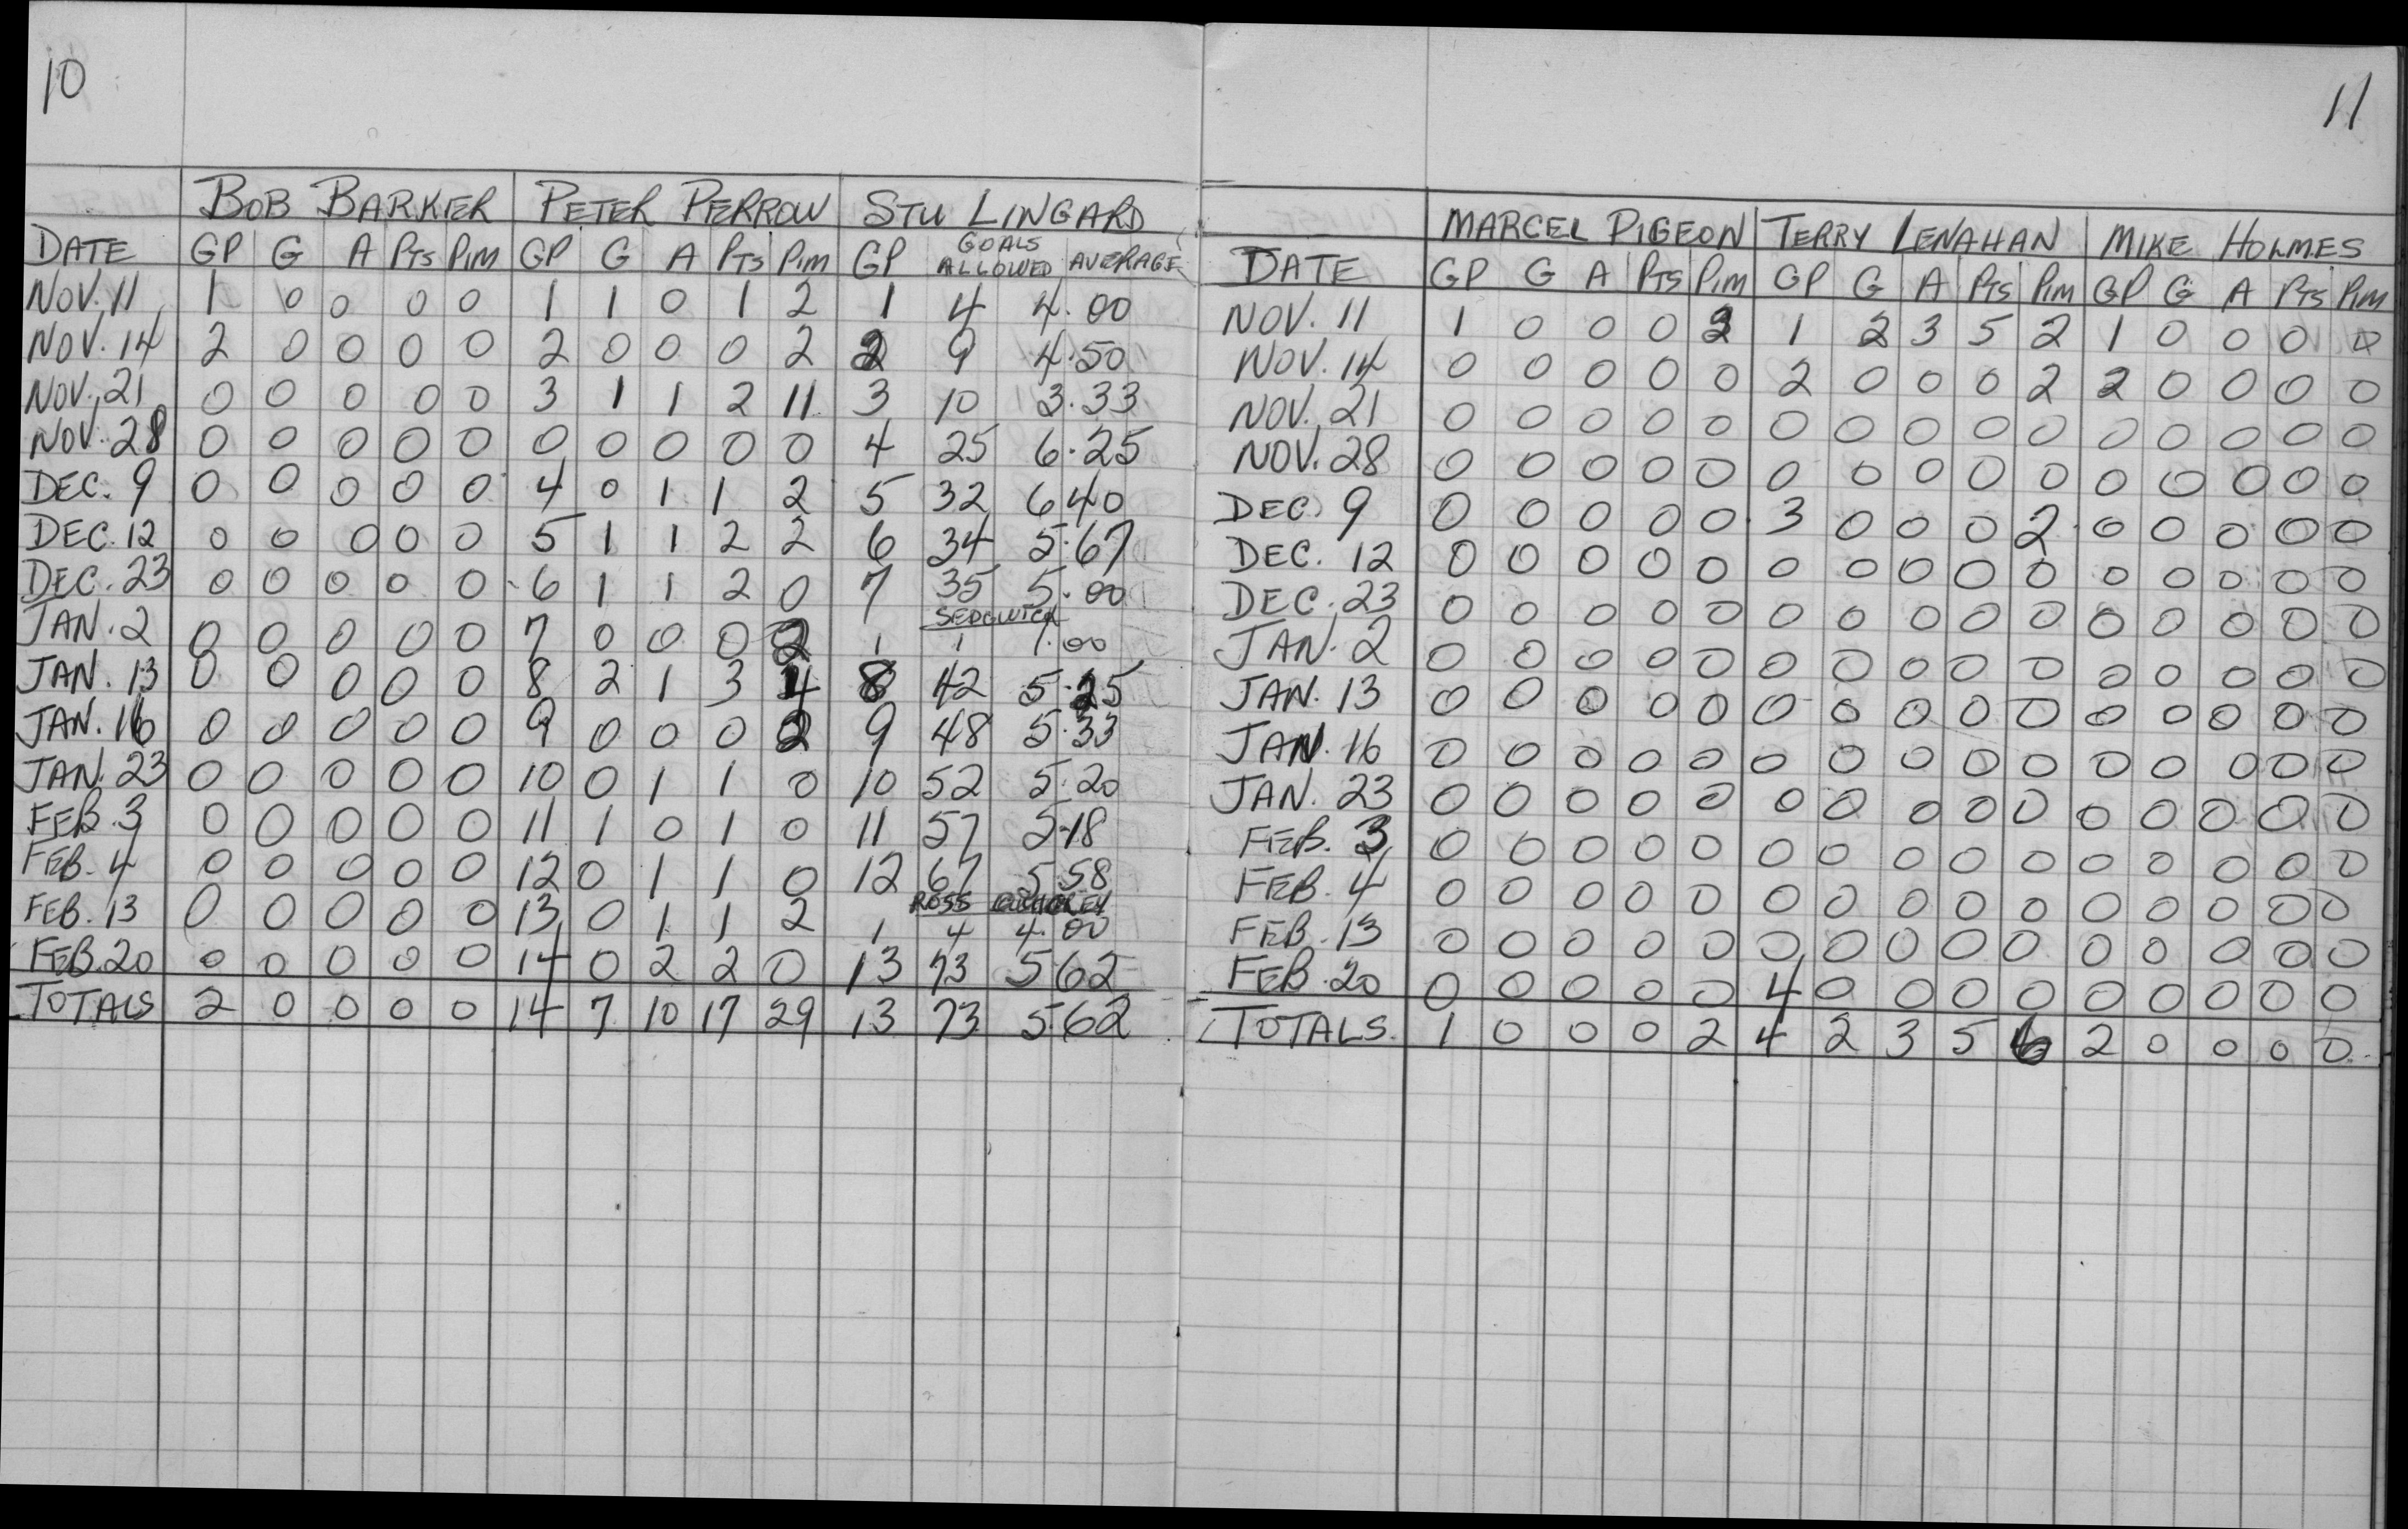 10
BOB BARKER PETER PERROW STU LINGARD
DATE GP G A PTS PIM GP G A PTS PIM GP GOALS ALLOWED AVERAGE
NOV. 11 1 0 0 0 0 1 1 0 1 2 1 4 4.00
NOV. 14 2 0 0 0 0 2 0 0 0 2 2 9 4.50
NOV. 21 0 0 0 0 0 3 1 1 2 11 3 10 3.33
NOV. 28 0 0 0 0 0 0 0 0 0 0 4 25 6.25
DEC. 9 0 0 0 0 0 4 0 1 1 2 5 32 6 40
DEC. 12 0 0 0 0 0 5 1 1 2 2 6 34 5.67
DEC. 23 0 0 0 0 0 6 1 1 2 0 7 35 5.00
SEDGWICK
JAN. 2 0 0 0 0 0 7 0 0 0 2 1 1 1.00
JAN. 13 0 0 0 0 0 8 2 1 3 4 8 42 5.25
JAN. 16 0 0 0 0 0 9 0 0 0 2 9 48 5.33
JAN. 23 0 0 0 0 0 10 0 1 1 0 10 52 5.20
FEB. 3 0 0 0 0 0 11 1 0 1 0 11 57 5.18
FEB. 4 0 0 0 0 0 12 0 1 1 0 12 67 5.58
ROSS
FEB. 13 0 0 0 0 0 13 0 1 1 2 1 4 4.00
FEB. 20 0 0 0 0 0 14 0 2 2 0 13 73 5 62
TOTALS 2 0 0 0 0 14 7 10 17 29 13 73 5.62
11
MARCEL PIGEON TERRY LENAHAN MIKE HOLMES
DATE GP G A PTS PIM GP G A PTS PIM GP G A PTS PIM
NOV. 11 1 0 0 0 2 1 2 3 5 2 1 0 0 0 0
NOV. 14 0 0 0 0 0 2 0 0 0 2 2 0 0 0 0
NOV. 21 0 0 0 0 0 0 0 0 0 0 0 0 0 0 0
NOV. 28 0 0 0 0 0 0 0 0 0 0 0 0 0 0 0
DEC. 9 0 0 0 0 0 3 0 0 0 2 0 0 0 0 0
DEC. 12 0 0 0 0 0 0 0 0 0 0 0 0 0 0 0
DEC. 23 0 0 0 0 0 0 0 0 0 0 0 0 0 0 0
JAN. 2 0 0 0 0 0 0 0 0 0 0 0 0 0 0 0
JAN. 13 0 0 0 0 0 0 0 0 0 0 0 0 0 0 0
JAN. 16 0 0 0 0 0 0 0 0 0 0 0 0 0 0 0
JAN. 23 0 0 0 0 0 0 0 0 0 0 0 0 0 0 0
FEB. 3 0 0 0 0 0 0 0 0 0 0 0 0 0 0 0
FEB. 4 0 0 0 0 0 0 0 0 0 0 0 0 0 0 0
FEB. 13 0 0 0 0 0 0 0 0 0 0 0 0 0 0 0
FEB. 20 0 0 0 0 0 4 0 0 0 0 0 0 0 0 0
TOTALS 1 0 0 0 2 4 2 3 5 6 2 0 0 0 0